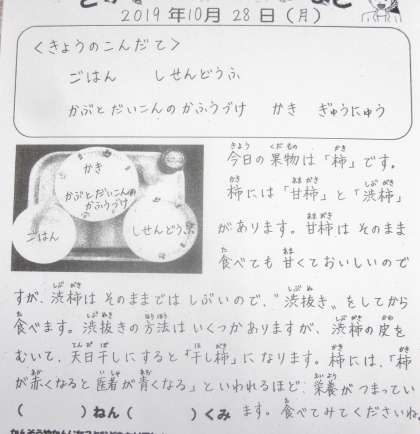 2019年10月28日(月)
<きょうのこんだて>
ごはん　しせんどうふ
かぶとだいこんのかふうづけ　かき　ぎゅうにゅう
かき
かぶとだいこんの
かふうづけ
ごはん
しせんどう
今日の果物は「柿」です。
柿には「甘柿」と「渋柿」
があります。甘柿はそのまま
食べても甘くておいしいので
すが、渋柿はそのままではしぶいので、"渋抜き"をしてから
食べます。渋抜きの方法はいくつかありますが、渋柿の皮を
むいて、天日干しにすると「干し柿」になります。柿には、「柿
が赤くなると医者が青くなる」といわれるほど、栄養がつまってい
(　　)ねん(　　)くみ　ます。食べてみてくださいね